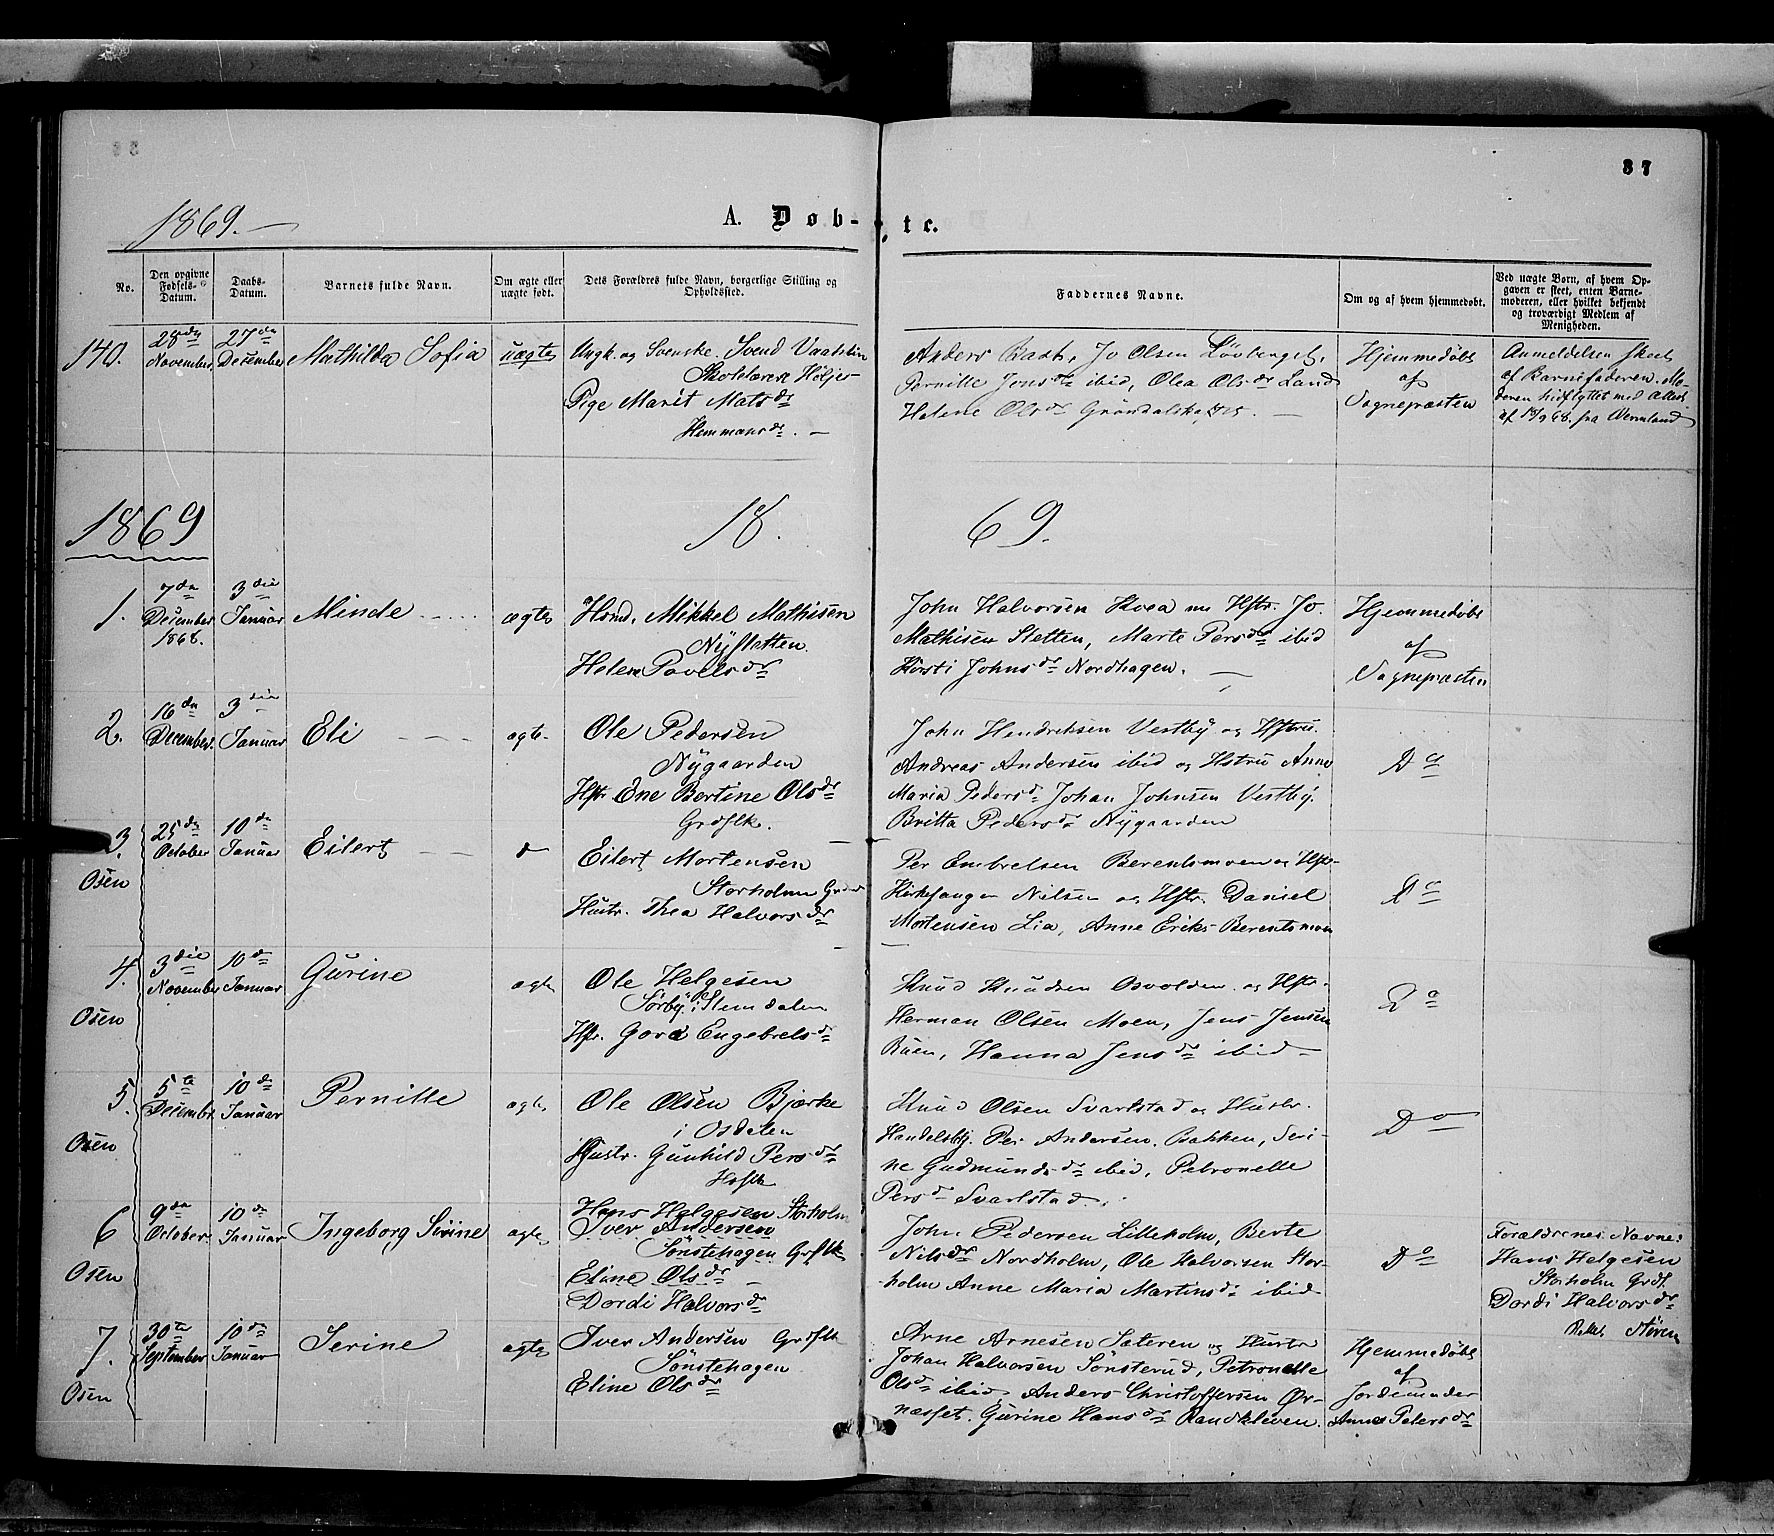 37
1869.
A. Døb- te.
No.
Den opgivne Fødsels-Datum.
Daabs-Datum.
Barnets fulde Navn.
Om ægte eller uægte født.
Dets Forældres fulde Navn, borgerlige Stilling og Opholdssted.
Faddernes Navne.
Om og af hvem hjemmedøbt.
Ved uægte Børn, af hvem Opgaven er skeet, enten Barnemoderen, eller hvilket bekjendt og troværdigt Medlem af Menigheden.
140. 28de November 27de December Mathilda Sofia uægte
Ungk. og Svenske. Svend Vaatstin
Skolelærere Höljes
Pige Marit Matsdr
Hemmansdr. —
Anders Bakk, Jo Olsen Lövberget,
Pernille Jonsdr ibid, Olea Olsdr Land
Helene Olsdr Gröndalska —
Hjemmedøbt
af
Sognepræsten
Anmeldelsen skeet
af Barnefaderen. Mo-
deren hidflyttet med Attest
af 18/9 68. fra Vermland
1869 18. 69.
1. 7de December 1868. 3die Januar Minde ægte
Hsmd. Mikkel Mathisen
Nysletten
Helene Povelsdr
John Halvorsen Kvea m Hstr. Jo
Mathisen Sletten, Marte Persdr ibid
Kirsti Johnsdr Nordhagen. —
Hjemmedøbt
af
Sognepræsten
2. 16de December 3die Januar Eli ægte.
Ole Pedersen
Nygaarden
Hstr Ene Bertine Olsdr
Grdflk.
John Hendriksen Vestby og Hstru.
Andreas Andersen ibid og Hstru Anne
Maria Pedersd Johan Johnsen Vestby.
Britta Pedersdr Nygaarden
Do
3. Osen 25de October 10de Januar Eilert
Eilert Mortensen
Storholm
Hustr. Thea Halvorsdr
Per Embretsen Berentsmoen og Hstr-
Kirkesanger Nilsen og Hstr. Daniel
Mortensen Lia, Anne Eriks- Berentsmoen
Do
4. Osen 3die November 10de Januar Gurine ægte
Ole Helgesen
Sørby, Slemdalen
Hstr. Gora Engebretsdr
Knud Knudsen Osvolden og Hstr-
Herman Olsen Moen, Jens Jensen
Buen, Hanna Jensdr ibid —
Do
5. Osen 5te December 10de Januar Pernille ægte
Ole Olsen Bjørke
i Osdalen
Hustr. Gunhild Persdr
Knud Olsen Svartstad og Hustr.
Handelsbtj. Per Andersen. Bakken, Seri-
ne Gudmundsdr ibid, Petronelle
Persdr Svartstad.
Do
6 Osen 9de October 10de Januar Ingeborg Serine ægte
Hans Helgesen Storholm
Iver Andersen
Sønstehagen Grdflk
Eline Olsdr —
Dordi Halvorsdr
John Pedersen Lilleholm, Berte
Nilsdr Nordholm, Ole Halvorsen Stor-
holm Anne Maria Martinsdr ibid
Do
Forældrenes Navne:
Hans Helgesen
Storholm Grdf.
Dordi Halvorsdr
7. Osen 30te September 10de Januar Serine ægte
Iver Andersen Grdflk
Sønstehagen
Eline Olsdr
Arne Arnesen Sæteren og Hustr
Johan Halvorsen Sønsterud, Petronelle
Olsd ibid, Anders Christoffersen Ør-
næsset, Gurine Hansdr Randkleven.
Hjemmedøbt
af
Jordemoder
Anne Petersdr